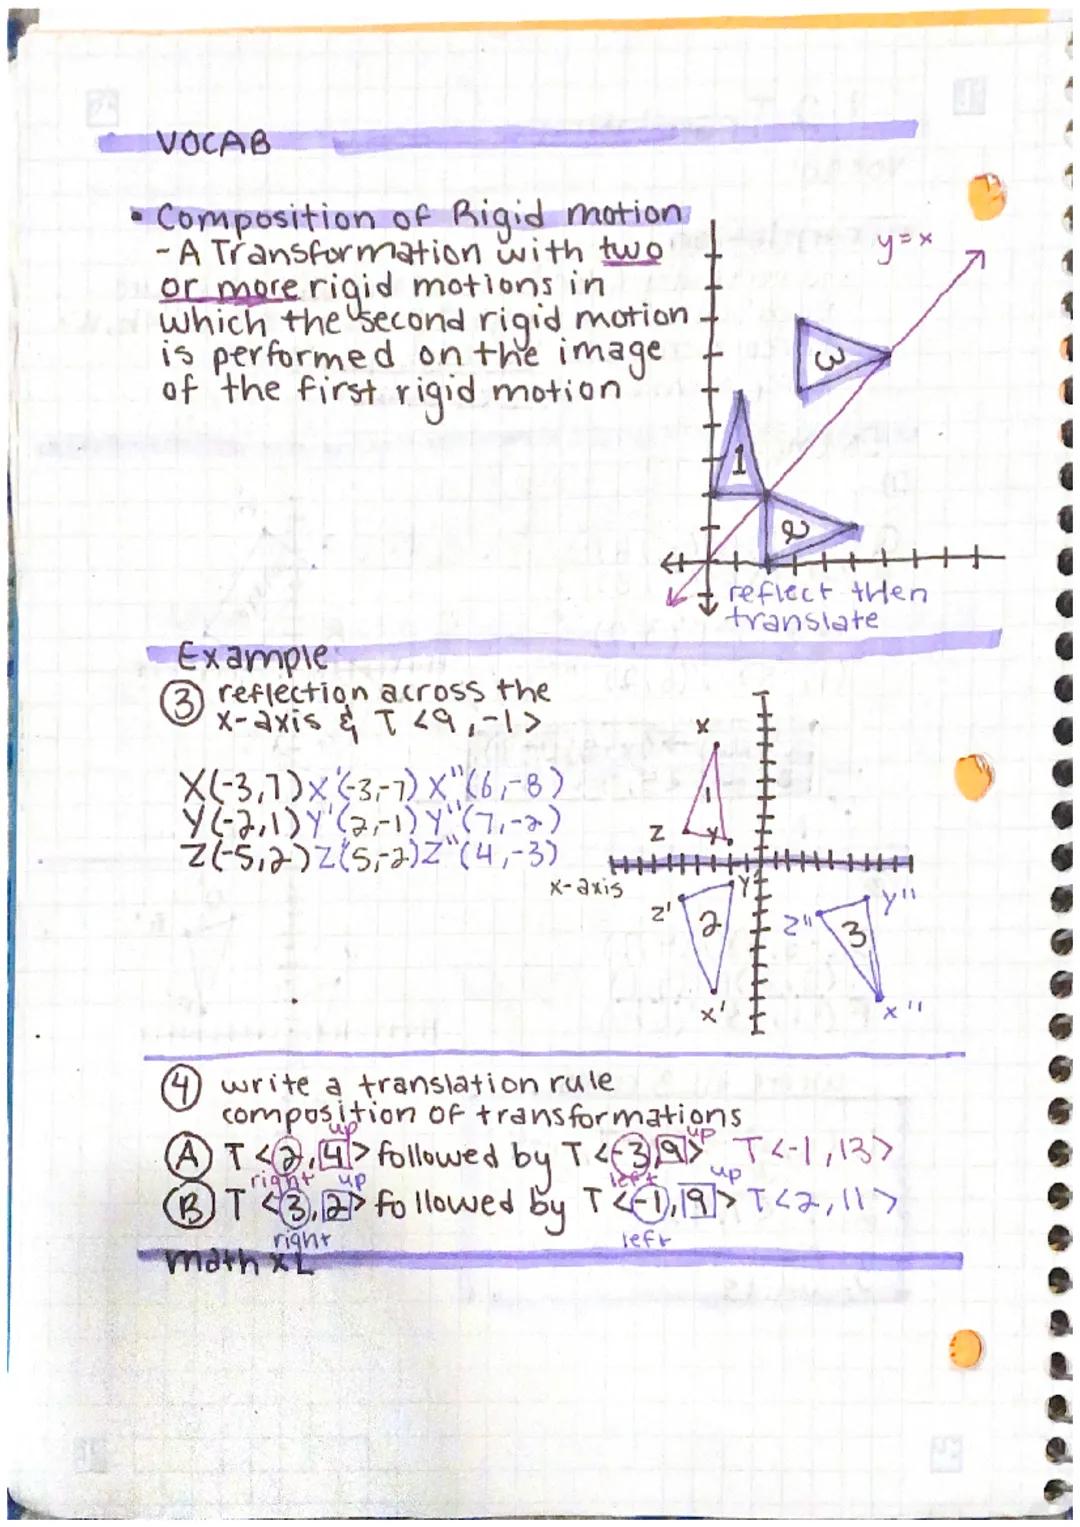 VOCAB
• Composition of Rigid motion
- A Transformation with two
or more rigid motions in
which the second rigid motion
is performed on the image
of the first rigid motion
y=x
3
1
2
reflect then
translate
Example
③ reflection across the
x-axis & T <9,-1>
X(-3,7) X'(-3,-7) X"(6,-8)
Y(-2,1) Y'(2,-1) Y"(7,-2)
Z(-5,2) Z(5,-2) Z"(4,-3)
X
1
Z
Y
x-axis
Y'
Z'
2
X'
Z"
3
Y"
X"
④ write a translation rule
composition of transformations
up up
Ⓐ T <2,4> followed by T <-3,9> T<-1,13>
right up left up
Ⓑ T <3,2> followed by T <-1,9> T<2,11>
right left
math XL